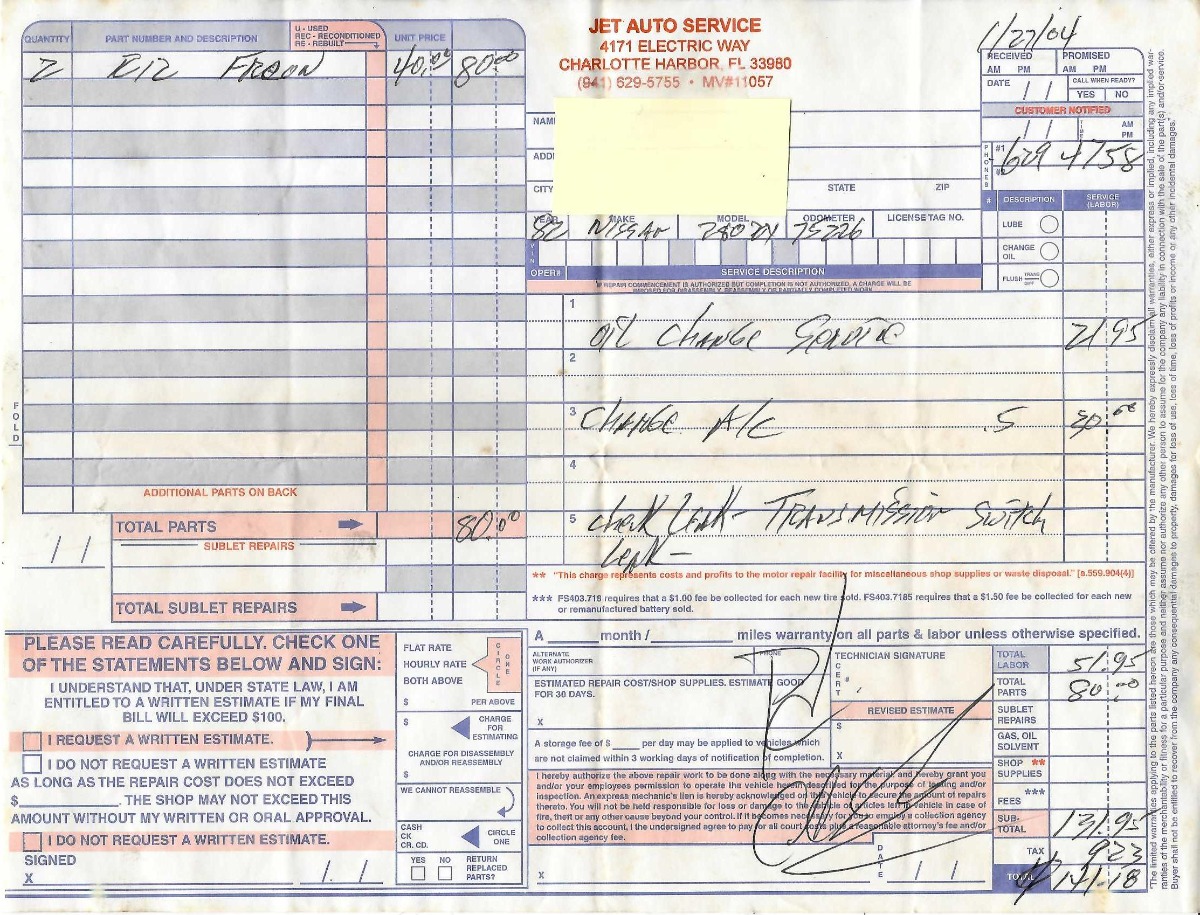 JET AUTO SERVICE
4171 ELECTRIC WAY
CHARLOTTE HARBOR, FL 33980
(941) 629-5755 • MV#11057
1/27/04
QUANTITY PART NUMBER AND DESCRIPTION U - USED REC - RECONDITIONED RE - REBUILT UNIT PRICE
2 R12 FREON 40.00 80.00
ADDITIONAL PARTS ON BACK
TOTAL PARTS 80.00
SUBLET REPAIRS
/ /
TOTAL SUBLET REPAIRS
FOLD
RECEIVED PROMISED
AM PM AM PM
DATE / / CALL WHEN READY?
YES NO
CUSTOMER NOTIFIED
/ / TIME AM PM
PHONES #1 629 4758
#2
NAM
ADD
CITY STATE ZIP
YEAR MAKE MODEL ODOMETER LICENSE TAG NO.
82 NISSAN 280ZX 75226
VIN
OPER# SERVICE DESCRIPTION
IF REPAIR COMMENCEMENT IS AUTHORIZED BUT COMPLETION IS NOT AUTHORIZED, A CHARGE WILL BE
IMPOSED FOR DISASSEMBLY, REASSEMBLY OR PARTIALLY COMPLETED WORK
# DESCRIPTION SERVICE (LABOR)
LUBE
CHANGE OIL
FLUSH TRANS DIFF
1 OIL CHANGE SERVICE 21.95
2
3 CHARGE A/C .5
4
5 CHECK LEAK - TRANSMISSION SWITCH
LEAK -
** "This charge represents costs and profits to the motor repair facility for miscellaneous shop supplies or waste disposal." [s.559.904(4)]
*** FS403.718 requires that a $1.00 fee be collected for each new tire sold. FS403.7185 requires that a $1.50 fee be collected for each new
or remanufactured battery sold.
A ______month / ________ miles warranty on all parts & labor unless otherwise specified.
PLEASE READ CAREFULLY. CHECK ONE
OF THE STATEMENTS BELOW AND SIGN:
I UNDERSTAND THAT, UNDER STATE LAW, I AM
ENTITLED TO A WRITTEN ESTIMATE IF MY FINAL
BILL WILL EXCEED $100.
I REQUEST A WRITTEN ESTIMATE.
I DO NOT REQUEST A WRITTEN ESTIMATE
AS LONG AS THE REPAIR COST DOES NOT EXCEED
$__________. THE SHOP MAY NOT EXCEED THIS
AMOUNT WITHOUT MY WRITTEN OR ORAL APPROVAL.
I DO NOT REQUEST A WRITTEN ESTIMATE.
SIGNED
X / /
FLAT RATE
HOURLY RATE
BOTH ABOVE
CIRCLE ONE
$ PER ABOVE
$ CHARGE FOR ESTIMATING
CHARGE FOR DISASSEMBLY
AND/OR REASSEMBLY
$
WE CANNOT REASSEMBLE
CASH
CK
CR. CD.
CIRCLE ONE
YES NO RETURN REPLACED PARTS?
ALTERNATE
WORK AUTHORIZER
(IF ANY)
PHONE
ESTIMATED REPAIR COST/SHOP SUPPLIES. ESTIMATE GOOD
FOR 30 DAYS.
X
A storage fee of $____ per day may be applied to vehicles which
are not claimed within 3 working days of notification of completion.
TECHNICIAN SIGNATURE
CERT #
REVISED ESTIMATE
$
X
I hereby authorize the above repair work to be done along with the necessary material, and hereby grant you
and/or your employees permission to operate the vehicle herein described for the purpose of testing and/or
inspection. An express mechanic's lien is hereby acknowledged on this vehicle to secure the amount of repairs
thereto. You will not be held responsible for loss or damage to the vehicle or articles left in vehicle in case of
fire, theft or any other cause beyond your control. If it becomes necessary for you to employ a collection agency
to collect this account, I the undersigned agree to pay for all court costs plus a reasonable attorney's fee and/or
collection agency fee.
X DATE / /
TOTAL LABOR 51.95
TOTAL PARTS 80.00
SUBLET REPAIRS
GAS, OIL SOLVENT
SHOP ** SUPPLIES
*** FEES
SUB-TOTAL 131.95
TAX 9.23
TOTAL 141.18